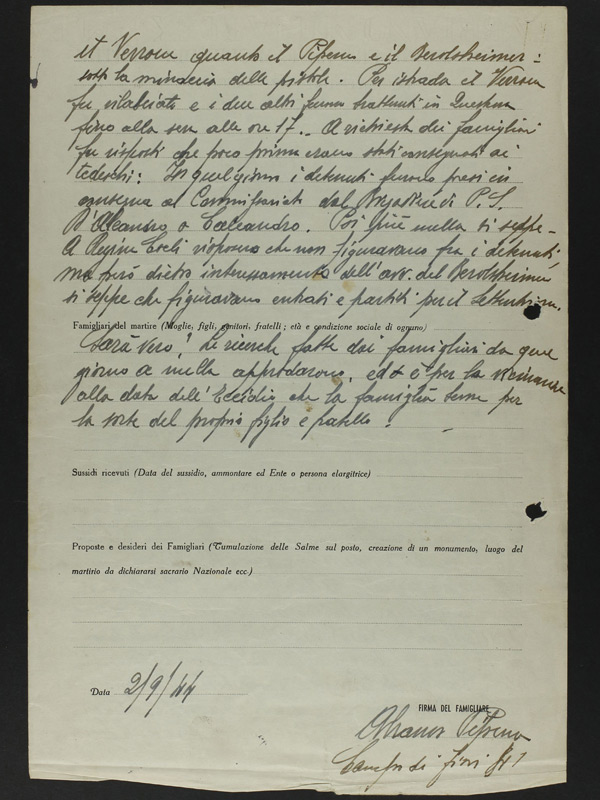 il Verrone quanto il Piperno e il Berolsheimer:
sotto la minaccia delle pistole. Per istrada il Verrone
fu rilasciato e i due altri furono trattenuti in Questura
fino alla sera alle ore 17. A richiesta dei famigliari
fu risposto che poco prima erano stati consegnati ai
tedeschi: In quel giorno i detenuti furono presi in
consegna al Commissariato dal Brigadiere di P. S.
D'Aleandro o Caleandro. Poi più nulla si seppe.
A Regina Coeli risposero che non figuravano fra i detenuti,
ma però dietro interessamento dell'avv. del Berolsheimer
si seppe che figuravano entrati e partiti per il Settentrione.
Famigliari del martire (Moglie, figli, genitori, fratelli; età e condizione sociale di ognuno)
Sarà vero? Le ricerche fatte dai famigliari da quel
giorno a nulla approdarono, ed è per la vicinanza
alla data dell'Eccidio che la famiglia teme per
la sorte del proprio figlio e fratello.
Sussidi ricevuti (Data del sussidio, ammontare ed Ente o persona elargitrice)
Proposte e desideri dei Famigliari (Tumulazione delle Salme sul posto, creazione di un monumento, luogo del
martirio da dichiararsi sacrario Nazionale ecc.)
Data 2/9/44
FIRMA DEL FAMIGLIARE
Piperno
Campo di Fiori 41